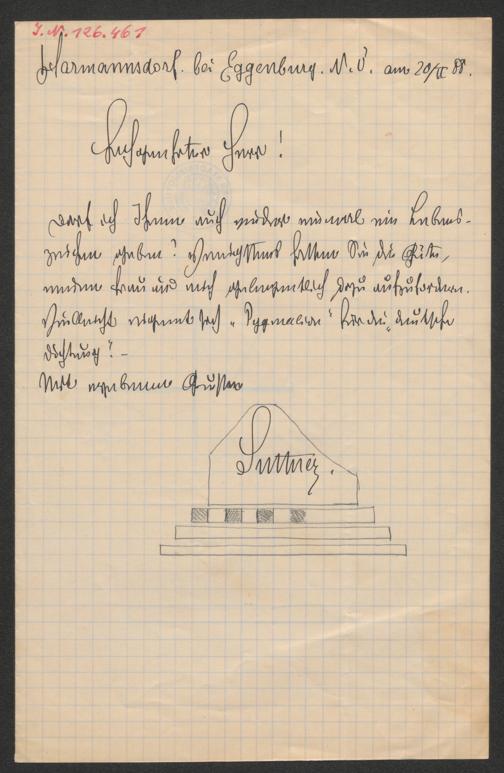 I.N. 126.461
Harmannsdorf. bei Eggenburg. N.Ö. am 20/II 88.
Hochgeehrter Herr!
Darf ich Ihnen auch wieder einmal ein Lebens-
zeichen geben? Wenigstens hatten Sie die Güte,
meine Frau und mich gelegentlich dazu aufzufordern.
Vielleicht eignet sich „Pygmalion" für die „deutsche
Dichtung"? –
Mit ergebenen Grüßen
Suttner.